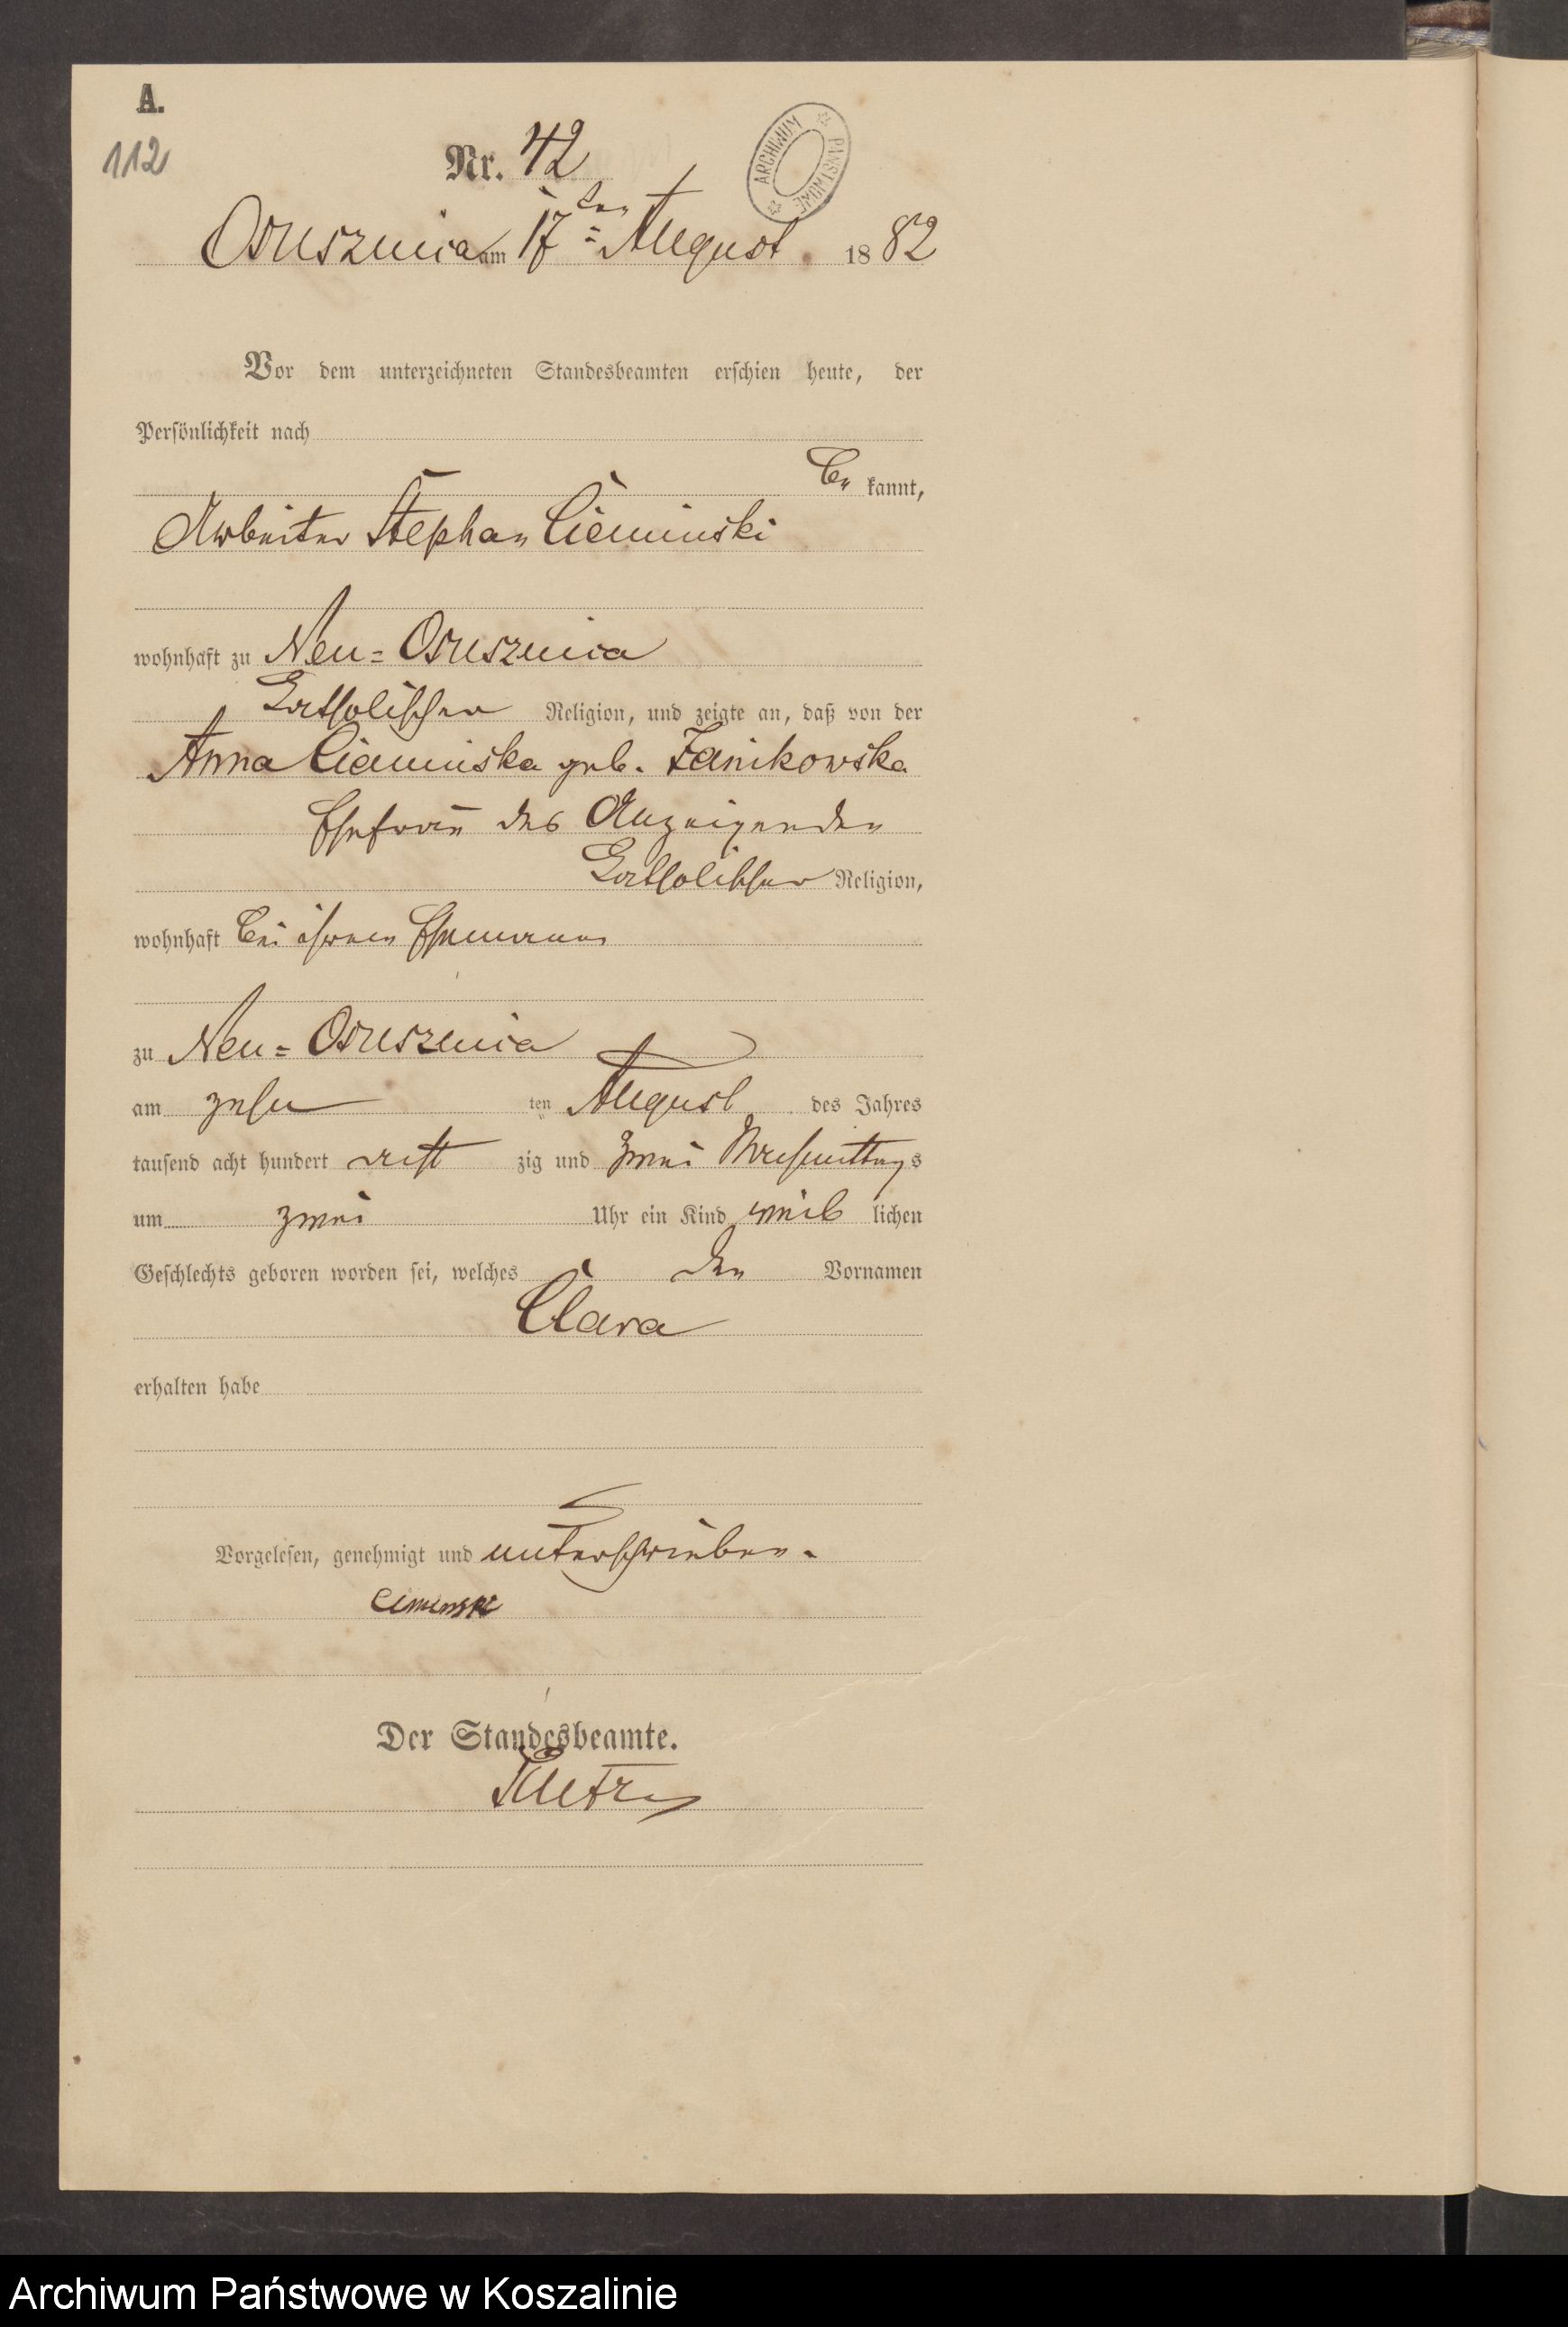 A.
112
Nr. 42
ARCHIWUM PAŃSTWOWE
Osusznica am 17ten August 1882
Vor dem unterzeichneten Standesbeamten erschien heute, der
Persönlichkeit nach
be kannt,
Arbeiter Stephan Cieminski
wohnhaft zu Neu=Osusznica
katholischer Religion, und zeigte an, daß von der
Anna Cieminska geb. Janikowska
Ehefrau des Anzeigenden
katholischer Religion,
wohnhaft bei ihrem Ehemann
zu Neu=Osusznica
am zehn ten August des Jahres
tausend acht hundert acht zig und zwei Nachmittags
um zwei Uhr ein Kind weib lichen
Geschlechts geboren worden sei, welches den Vornamen
Clara
erhalten habe
Vorgelesen, genehmigt und unterschrieben.
Ciminski
Der Standesbeamte.
Archiwum Państwowe w Koszalinie